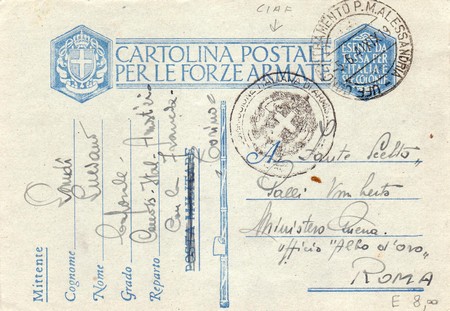 CIAF
CARTOLINA POSTALE
PER LE FORZE ARMATE
ESENTE DA
TASSA PER
L'ITALIA E
LE COLONIE
P.M. ALESSANDRIA
COMMISSIONE ITALIANA DI ARMISTIZIO
Mittente
Cognome
Nome Luciano
Grado Caporale
Reparto Comm. Ital. Armistizio
con la Francia
POSTA MILITARE Torino
A Sante Scelto
Galli Umberto
Ministero Guerra
Ufficio "Albo d'oro"
ROMA
E 8,00